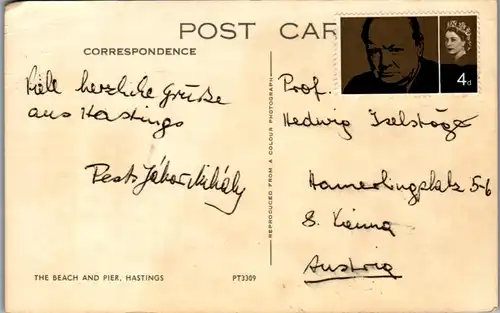 POST CAR
CORRESPONDENCE
4d
Viele herzliche Grüße
aus Hastings
Mihály
Prof.
Hedwig
Hamerlingplatz 5-6
8. Vienna
Austria
REPRODUCED FROM A COLOUR PHOTOGRAPH
THE BEACH AND PIER, HASTINGS
PT3309